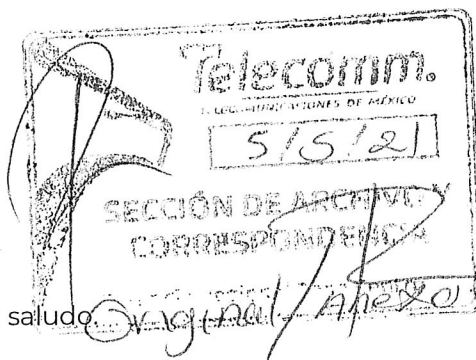 Telecomm.
TELECOMUNICACIONES DE MÉXICO
5/5/21
SECCIÓN DE ARCHIVO Y
CORRESPONDENCIA
saludo. Original / Anexo